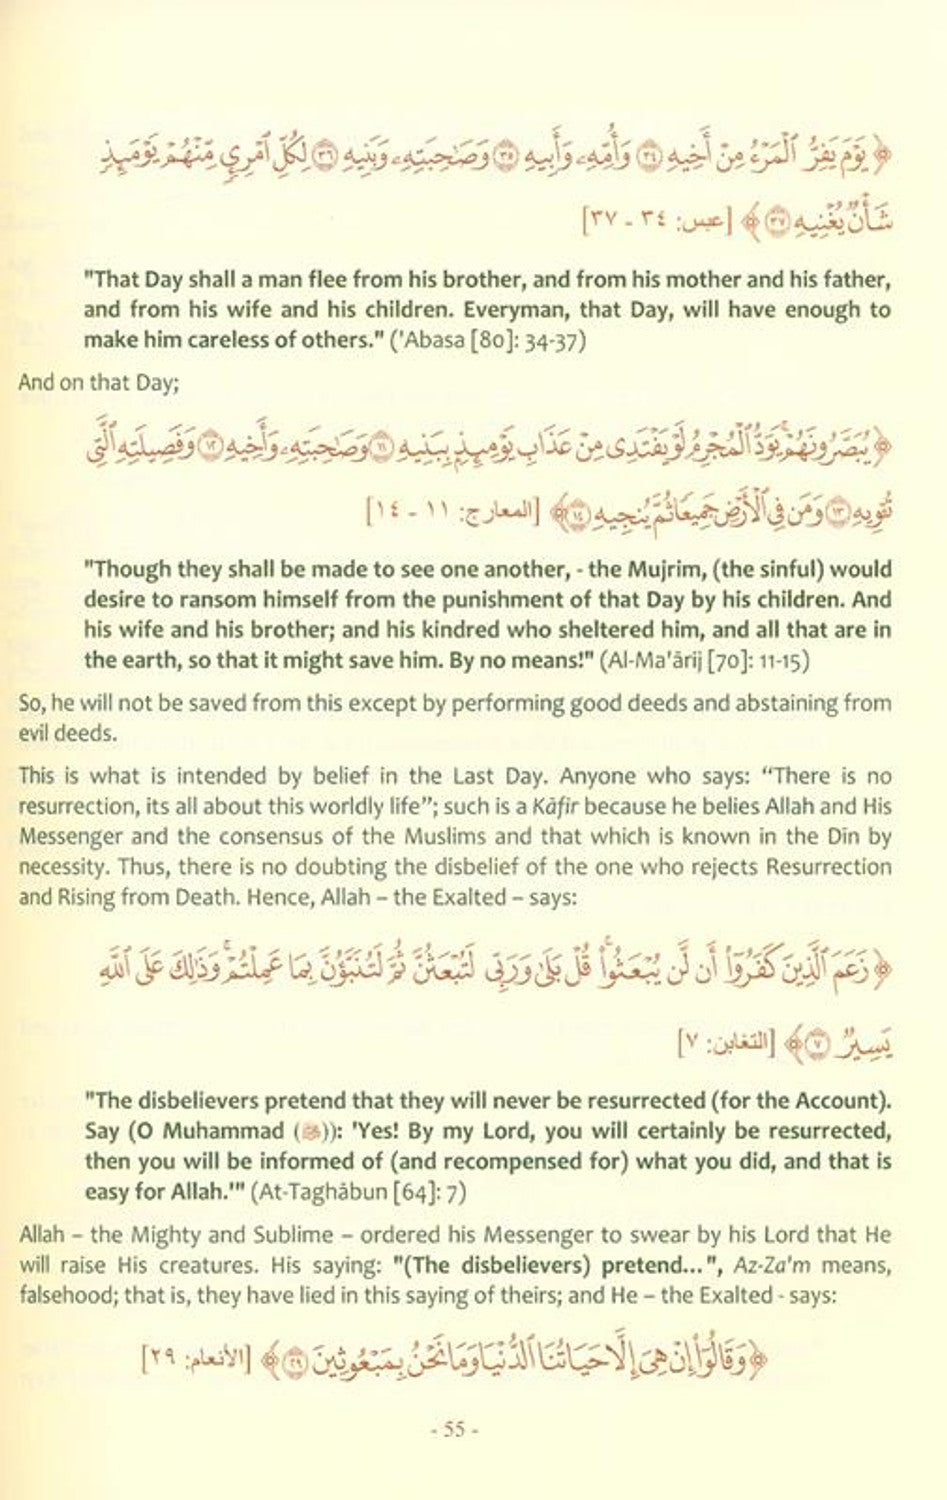 ﴿ يَوْمَ يَفِرُّ ٱلْمَرْءُ مِنْ أَخِيهِ ٣٤ وَأُمِّهِۦ وَأَبِيهِ ٣٥ وَصَٰحِبَتِهِۦ وَبَنِيهِ ٣٦ لِكُلِّ ٱمْرِئٍ مِّنْهُمْ يَوْمَئِذٍ
شَأْنٌ يُغْنِيهِ ٣٧ ﴾ [عبس: ٣٤ - ٣٧]
"That Day shall a man flee from his brother, and from his mother and his father,
and from his wife and his children. Everyman, that Day, will have enough to
make him careless of others." ('Abasa [80]: 34-37)
And on that Day;
﴿ يُبَصَّرُونَهُمْ ۚ يَوَدُّ ٱلْمُجْرِمُ لَوْ يَفْتَدِى مِنْ عَذَابِ يَوْمِئِذٍۭ بِبَنِيهِ ١١ وَصَٰحِبَتِهِۦ وَأَخِيهِ ١٢ وَفَصِيلَتِهِ ٱلَّتِى
تُـْٔوِيهِ ١٣ وَمَن فِى ٱلْأَرْضِ جَمِيعًا ثُمَّ يُنجِيهِ ١٤ ﴾ [المعارج: ١١ - ١٤]
"Though they shall be made to see one another, - the Mujrim, (the sinful) would
desire to ransom himself from the punishment of that Day by his children. And
his wife and his brother; and his kindred who sheltered him, and all that are in
the earth, so that it might save him. By no means!" (Al-Ma'ārij [70]: 11-15)
So, he will not be saved from this except by performing good deeds and abstaining from
evil deeds.
This is what is intended by belief in the Last Day. Anyone who says: “There is no
resurrection, its all about this worldly life”; such is a Kāfir because he belies Allah and His
Messenger and the consensus of the Muslims and that which is known in the Dīn by
necessity. Thus, there is no doubting the disbelief of the one who rejects Resurrection
and Rising from Death. Hence, Allah – the Exalted – says:
﴿ زَعَمَ ٱلَّذِينَ كَفَرُوٓا۟ أَن لَّن يُبْعَثُوا۟ ۚ قُلْ بَلَىٰ وَرَبِّى لَتُبْعَثُنَّ ثُمَّ لَتُنَبَّؤُنَّ بِمَا عَمِلْتُمْ ۚ وَذَٰلِكَ عَلَى ٱللَّهِ
يَسِيرٌ ٧ ﴾ [التغابن: ٧]
"The disbelievers pretend that they will never be resurrected (for the Account).
Say (O Muhammad (ﷺ)): 'Yes! By my Lord, you will certainly be resurrected,
then you will be informed of (and recompensed for) what you did, and that is
easy for Allah.'" (At-Taghābun [64]: 7)
Allah – the Mighty and Sublime – ordered his Messenger to swear by his Lord that He
will raise His creatures. His saying: "(The disbelievers) pretend...", Az-Za'm means,
falsehood; that is, they have lied in this saying of theirs; and He – the Exalted - says:
﴿ وَقَالُوٓا۟ إِنْ هِىَ إِلَّا حَيَاتُنَا ٱلدُّنْيَا وَمَا نَحْنُ بِمَبْعُوثِينَ ٢٩ ﴾ [الأنعام: ٢٩]
- 55 -